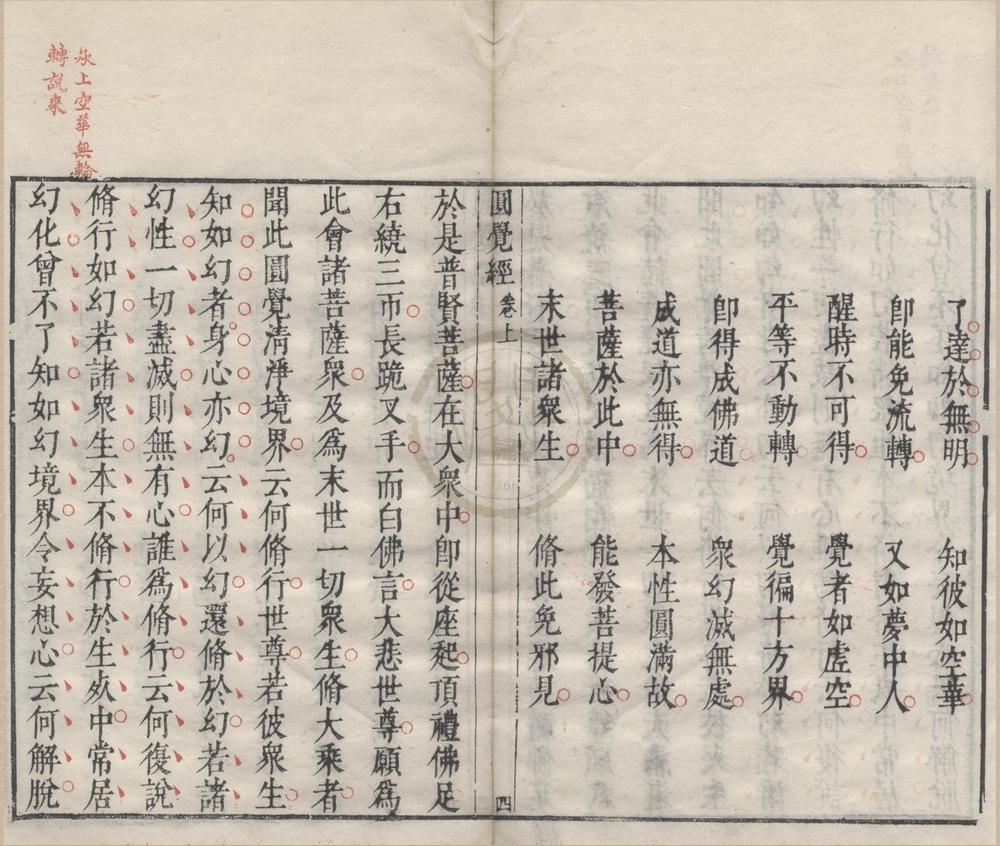 了達於無明　知彼如空華
卽能免流轉　又如夢中人
醒時不可得　覺者如虛空
平等不動轉　覺徧十方界
卽得成佛道　衆幻滅無處
成道亦無得　本性圓滿故
菩薩於此中　能發菩提心
末世諸衆生　脩此免邪見
圓覺經　卷上　四
於是普賢菩薩在大衆中卽從座起頂禮佛足
右繞三帀長跪叉手而白佛言大悲世尊願爲
此會諸菩薩衆及爲末世一切衆生脩大乘者
聞此圓覺淸淨境界云何脩行世尊若彼衆生
知如幻者身心亦幻云何以幻還脩於幻若諸
幻性一切盡滅則無有心誰爲脩行云何復說
脩行如幻若諸衆生本不脩行於生死中常居
幻化曾不了知如幻境界令妄想心云何解脫
上空華無輪
轉說來